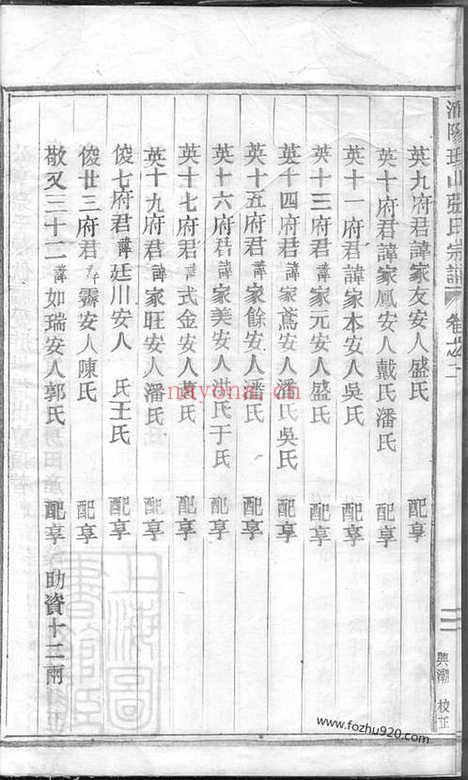 張氏宗譜 卷之二
三
興潮 校正
英九府君諱家友安人盛氏 配享
英十府君諱家鳳安人戴氏潘氏 配享
英十一府君諱家本安人吳氏 配享
英十三府君諱家元安人盛氏 配享
英十四府君諱家鳶安人潘氏吳氏 配享
英十五府君諱家餘安人潘氏 配享
英十六府君諱家美安人洪氏于氏 配享
英十七府君諱 式金安人萬氏 配享
英十九府君諱家旺安人潘氏 配享
俊七府君諱廷川安人 氏王氏 配享
俊廿三府君諱霖安人陳氏 配享
敬又三十二諱如瑞安人郭氏 配享 助資十二兩
上海圖書館藏
nayona.cn
www.fozhu920.com